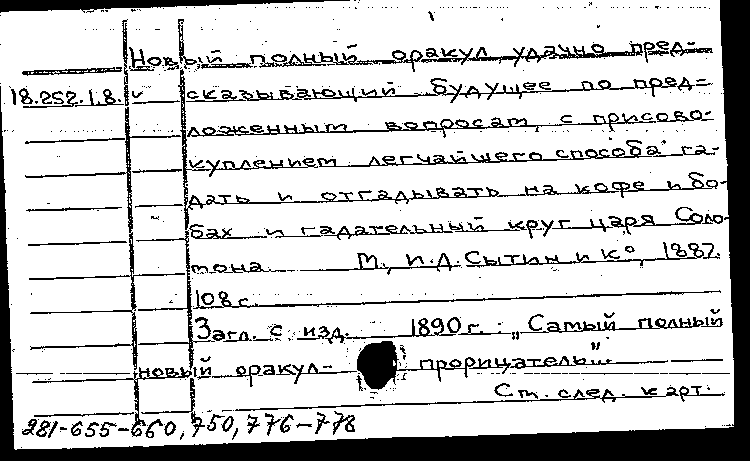 Новый полный оракул, удачно пред-
18.252.1.8. сказывающий будущее по пред=
ложенным вопросам, с присово-
куплением легчайшего способа га-
дать и отгадывать на кофе и бо-
бах и гадательный круг царя Соло-
мона. М., И.Д. Сытин и Кº, 1887.
108 с.
Загл. с изд. 1890 г.: „Самый полный
новый оракул- прорицатель".
См. след. карт.
281-655-660, 750, 776-778